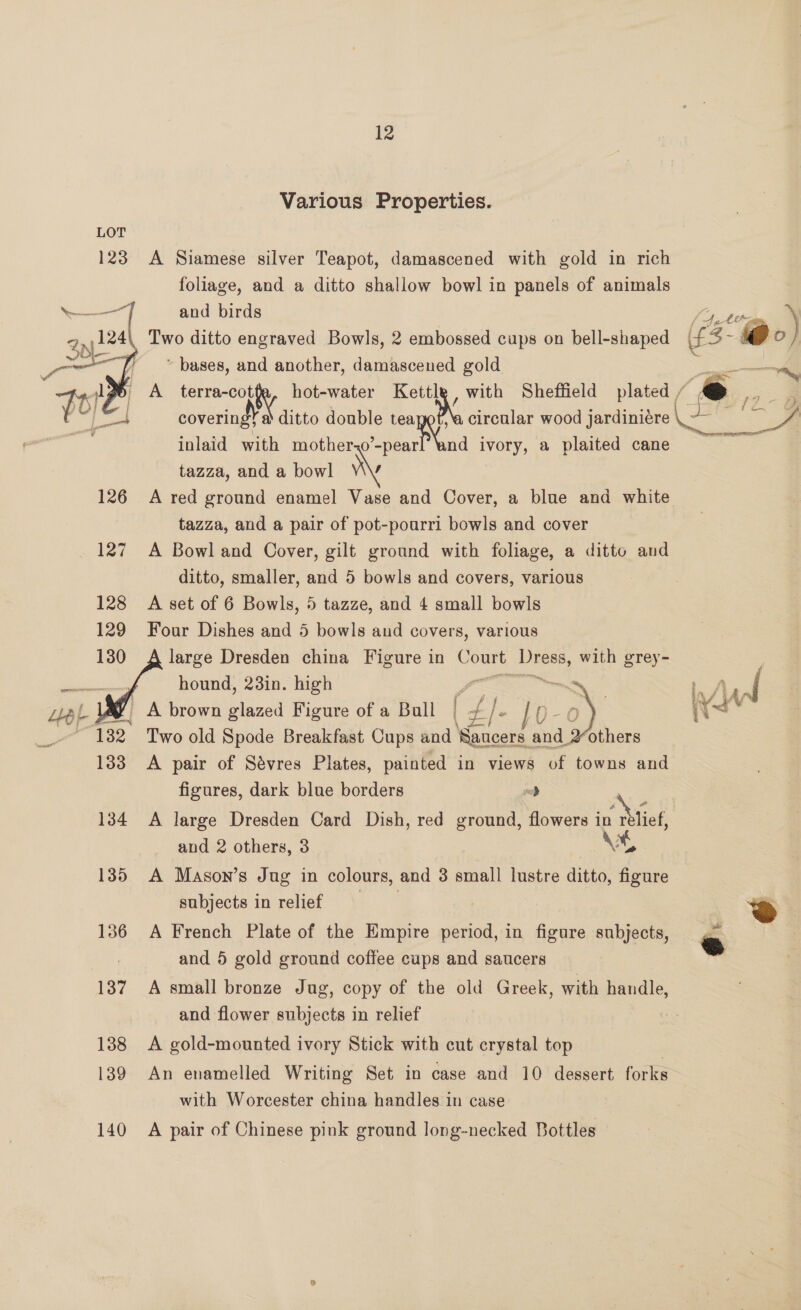 12
Various Properties.
LOT
123 A Siamese silver Teapot, damascened with gold in rich
foliage, and a ditto shallow bowl in panels of animals
and birds
124 Two ditto engraved Bowls, 2 embossed cups on bell-shaped
bases, and another, damascened gold
A terra-cotta, hot-water Kettle, with Sheffield plated
covering, a ditto double teapot, a circular wood jardinière
inlaid with mother-o'-pearl and ivory, a plaited cane
tazza, and a bowl
126 A red ground enamel Vase and Cover, a blue and white
tazza, and a pair of pot-pourri bowls and cover
127 A Bowl and Cover, gilt ground with foliage, a ditto and
ditto, smaller, and 5 bowls and covers, various
128 A set of 6 Bowls, 5 tazze, and 4 small bowls
129 Four Dishes and 5 bowls and covers, various
130 A large Dresden china Figure in Court Dress, with grey-
hound, 23in. high
A brown glazed Figure of a Bull
132 Two old Spode Breakfast Cups and Saucers and 2 others
133 A pair of Sévres Plates, painted in views of towns and
figures, dark blue borders
134 A large Dresden Card Dish, red ground, flowers in relief,
and 2 others, 3
135 A Mason's Jug in colours, and 3 small lustre ditto, figure
subjects in relief
136 A French Plate of the Empire period, in figure subjects,
and 5 gold ground coffee cups and saucers
137 A small bronze Jug, copy of the old Greek, with handle,
and flower subjects in relief
138 A gold-mounted ivory Stick with cut crystal top
139 An enamelled Writing Set in case and 10 dessert forks
with Worcester china handles in case
140 A pair of Chinese pink ground long-necked Bottles